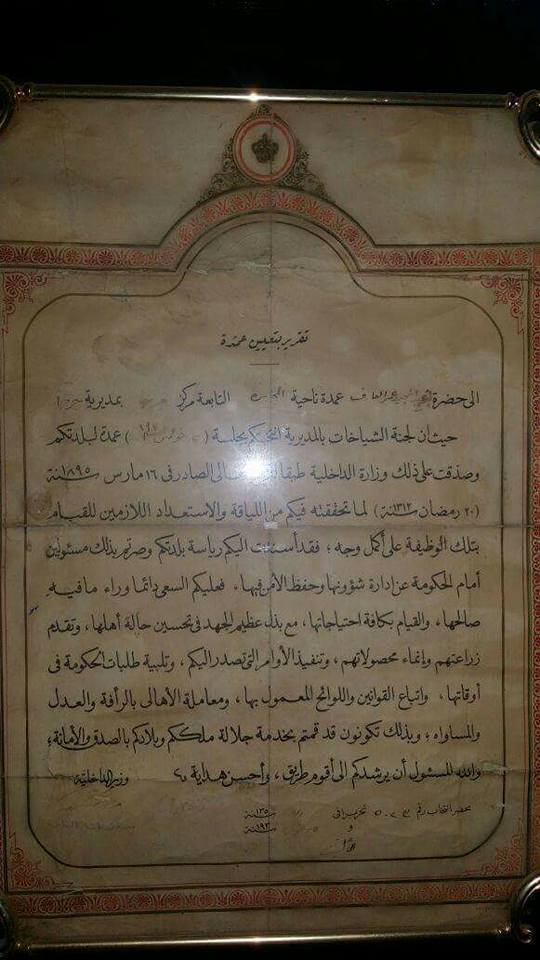 تقرير بتعيين عمدة
الى حضرة عمدة ناحية التابعة مركز بمديرية
حيث ان لجنة الشياخات بالمديرية بجلسة ( ) عمدة لبلدتكم
وصدّقت على ذلك وزارة الداخلية طبقا الصادر فى ١٦ مارس سنة ١٨٩٥
(٢٠ رمضان سنة ١٣١٢) لما تحققته فيكم من اللياقة والاستعداد اللازمين للقيام
بتلك الوظيفة على أكمل وجه ؛ فقد أسندت اليكم رياسة بلدتكم وصرتم بذلك مسئولين
أمام الحكومة عن إدارة شؤونها وحفظ الأمن فيها . فعليكم السعى دائما وراء مافيه
صالحها، والقيام بكافة احتياجاتها، مع بذل عظيم الجهد فى تحسين حالة أهلها، وتقدم
زراعتهم وإنماء محصولاتهم، وتنفيذ الأوامر التى تصدر اليكم، وتلبية طلبات الحكومة فى
أوقاتها، واتباع القوانين واللوائح المعمول بها، ومعاملة الأهالى بالرأفة والعدل
والمساواه ؛ وبذلك تكونون قد قمتم بخدمة جلالة ملككم وبلادكم بالصدق والأمانة ؛
والله المسئول أن يرشدكم الى أقوم طريق، وأحسن هداية وزير الداخلية
محضر انتخاب رقم تحريرا فى سنة ١٣٥
و سنة ١٩٣